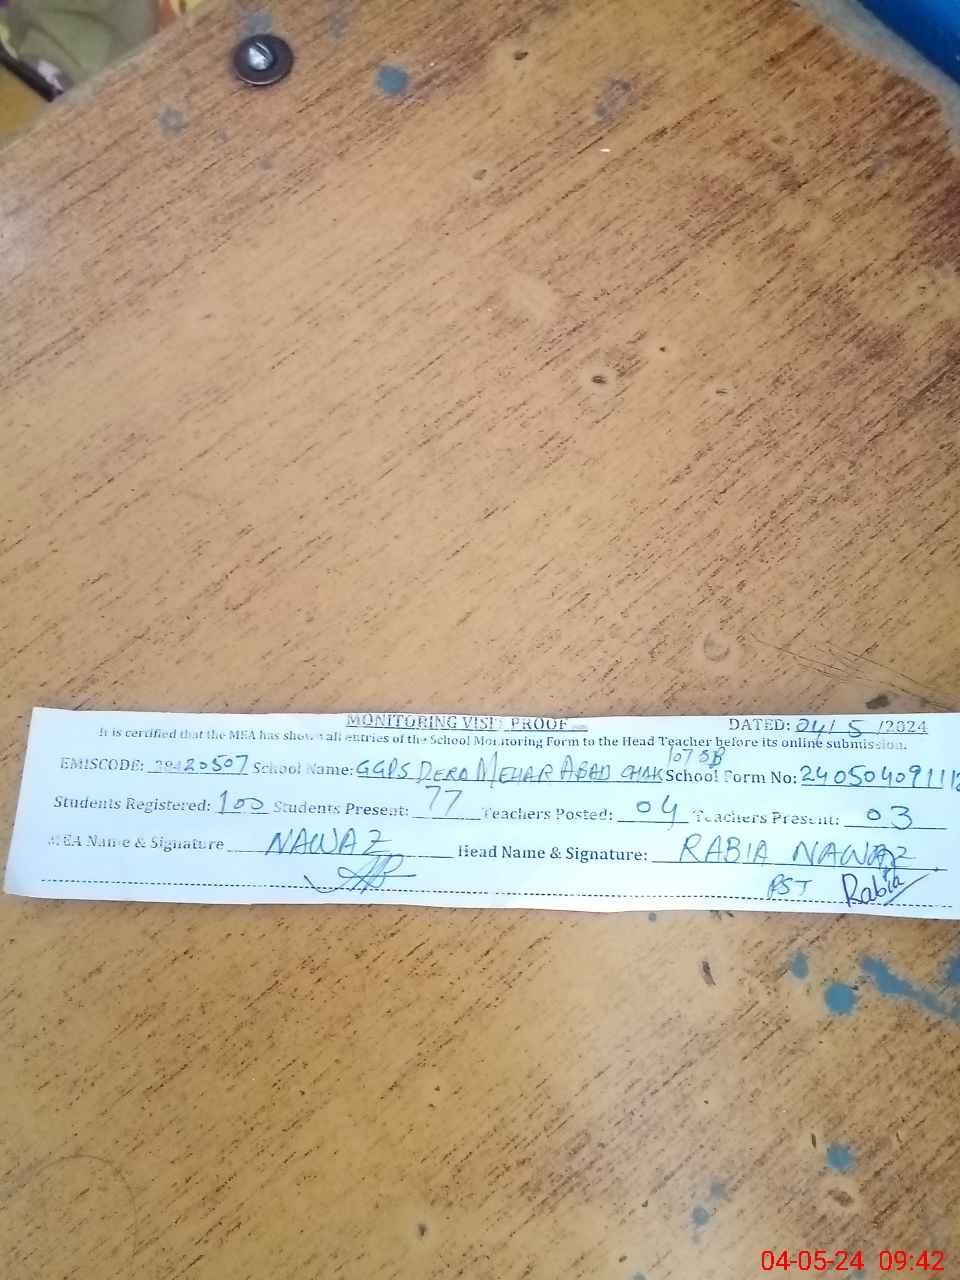 MONITORING VISIT PROOF
DATED: 04/5/2024
It is certified that the MEA has shown all entries of the School Monitoring Form to the Head Teacher before its online submission.
107 SB
EMISCODE: 38420507 School Name: GGPS DERA MEHAR ABAD CHAK School Form No: 24050409111
Students Registered: 100 Students Present: 77 Teachers Posted: 04 Teachers Present: 03
MEA Name & Signature NAWAZ Head Name & Signature: RABIA NAWAZ
PST Rabia
04-05-24 09:42